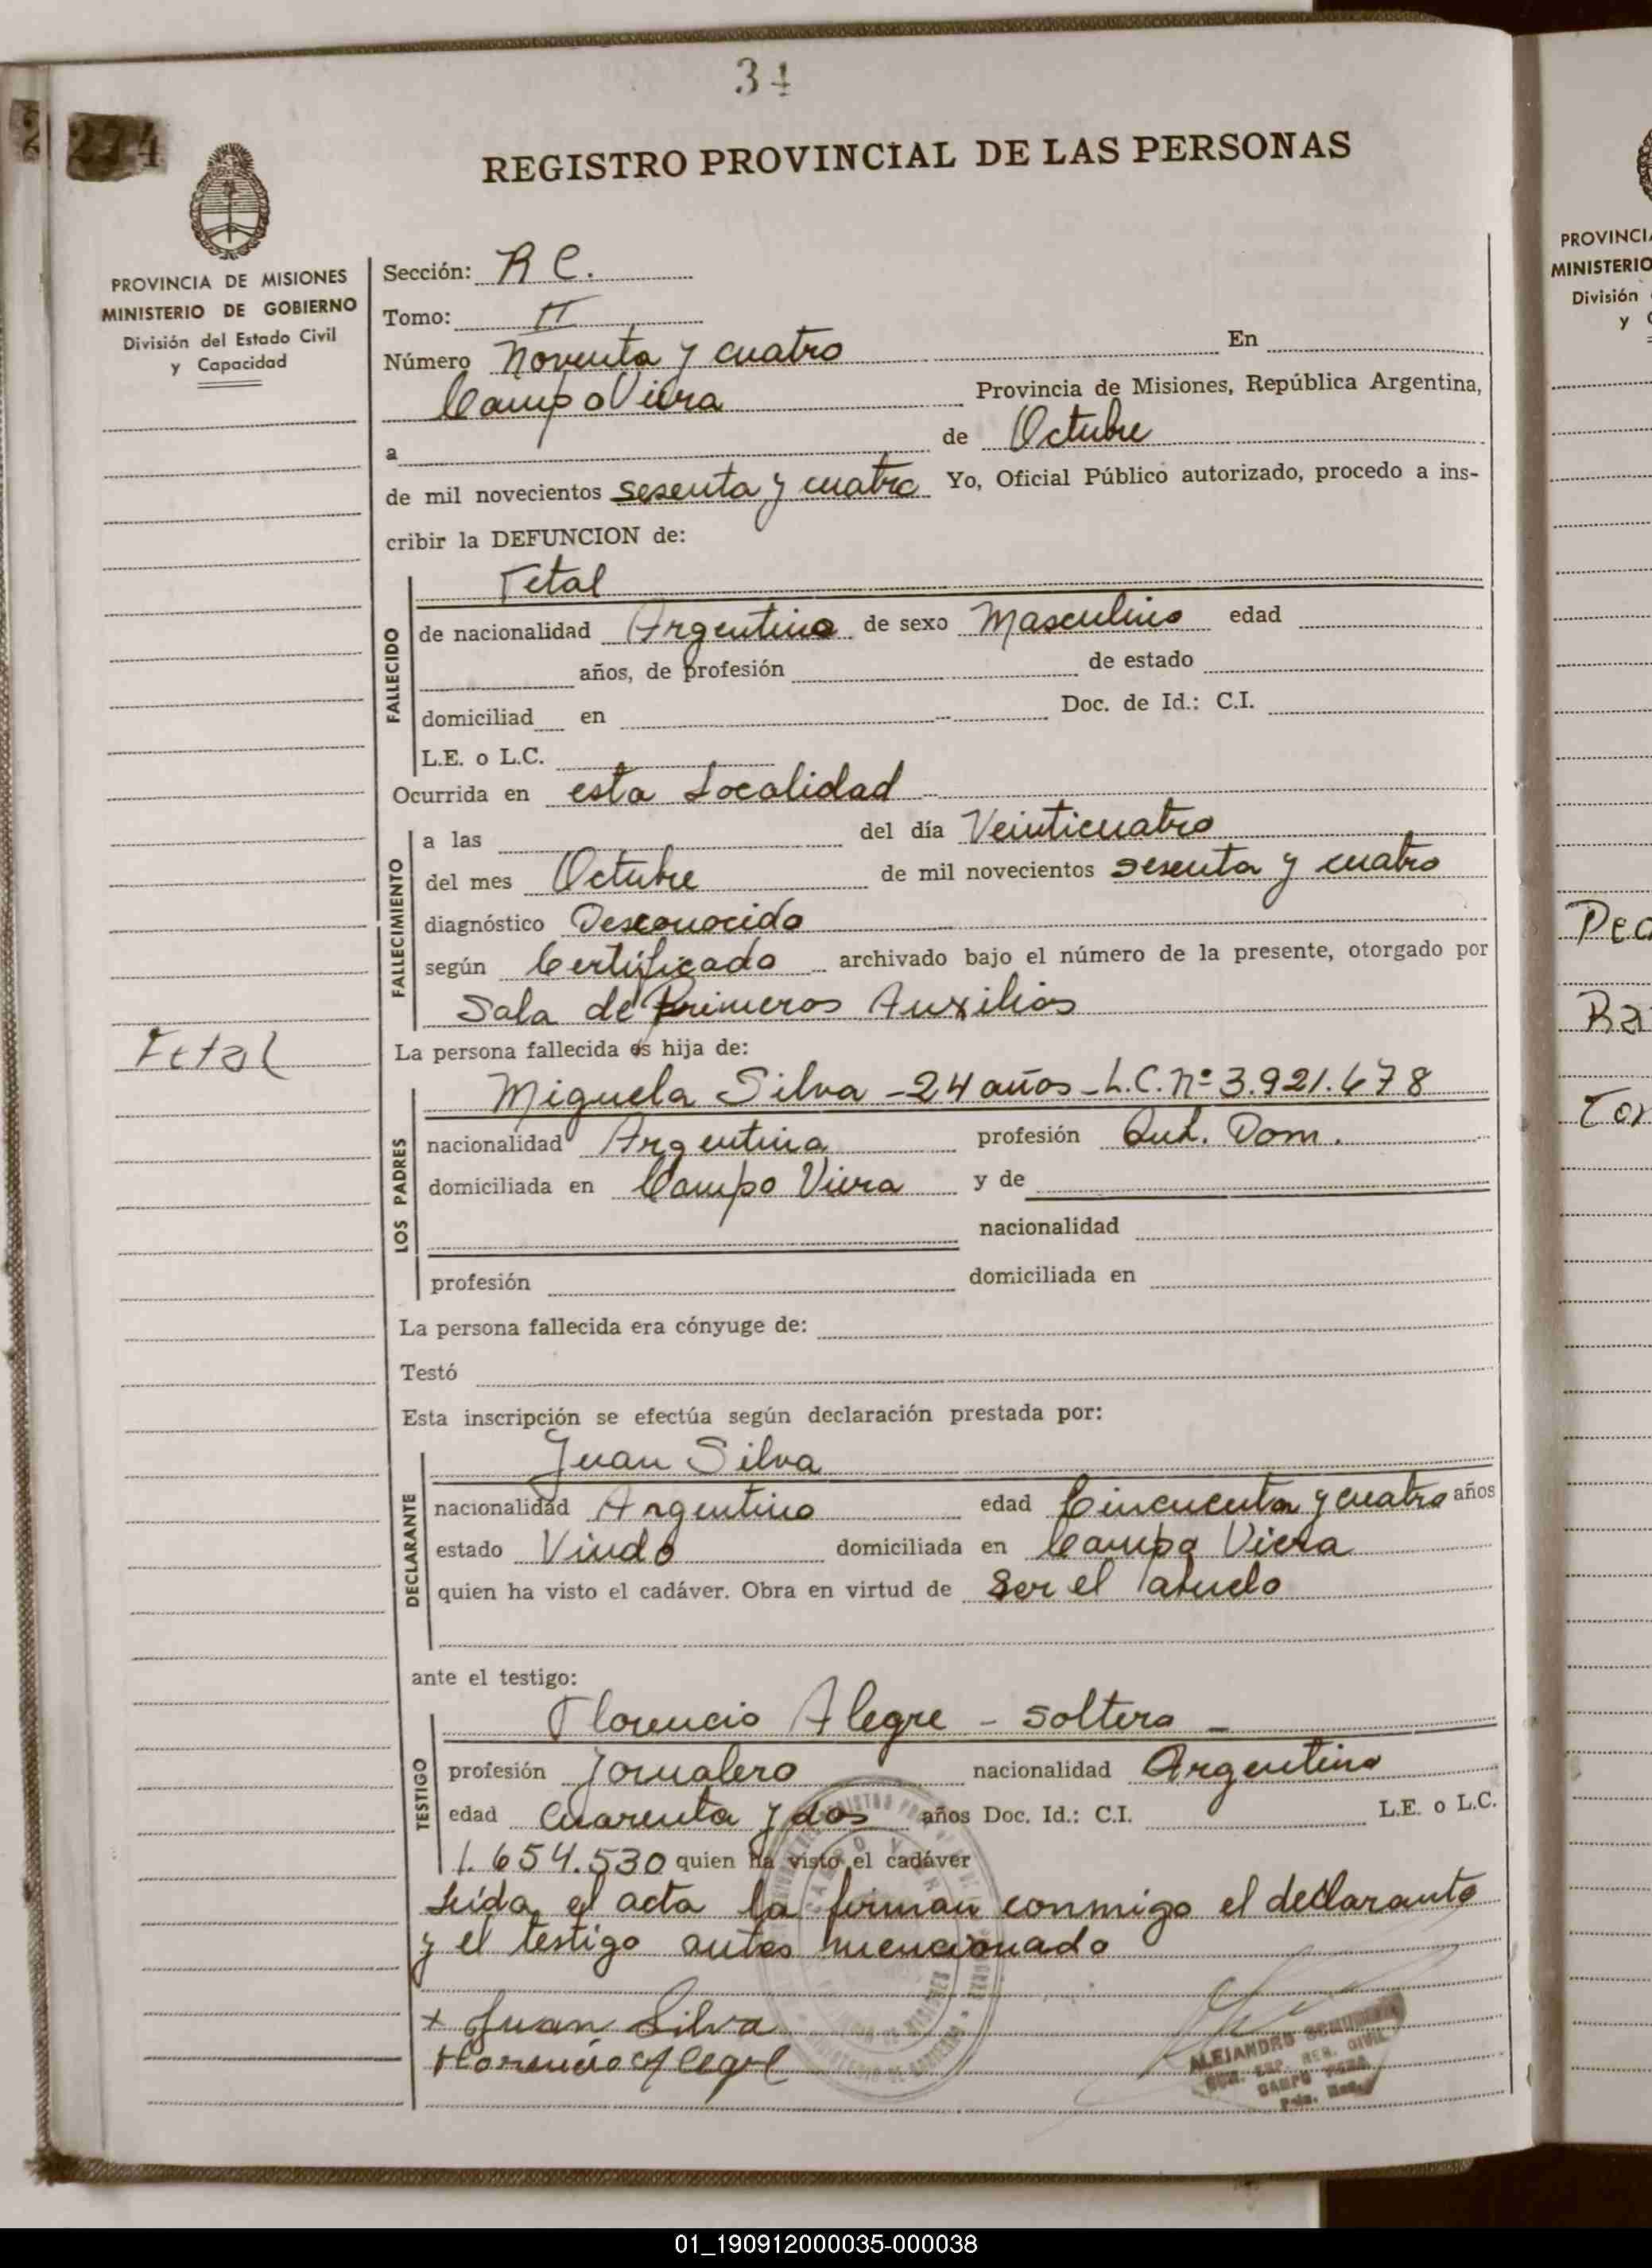 34
274
REGISTRO PROVINCIAL DE LAS PERSONAS
PROVINCIA DE MISIONES
MINISTERIO DE GOBIERNO
División del Estado Civil
y Capacidad
Sección: R C.
Tomo: II
Número Noventa y cuatro En
Campo Viera Provincia de Misiones, República Argentina,
a de Octubre
de mil novecientos sesenta y cuatro Yo, Oficial Público autorizado, procedo a ins-
cribir la DEFUNCION de:
FALLECIDO
Fetal
de nacionalidad Argentino de sexo Masculino edad
años, de profesión de estado
domiciliad en Doc. de Id.: C.I.
L.E. o L.C.
Ocurrida en esta Localidad
FALLECIMIENTO
a las del día Veinticuatro
del mes Octubre de mil novecientos sesenta y cuatro
diagnóstico Desconocido
según Certificado archivado bajo el número de la presente, otorgado por
Sala de Primeros Auxilios
Fetal
La persona fallecida es hija de:
LOS PADRES
Miguela Silva - 24 años - L.C. Nº 3.921.678
nacionalidad Argentina profesión Dom.
domiciliada en Campo Viera y de
nacionalidad
profesión domiciliada en
La persona fallecida era cónyuge de:
Testó
Esta inscripción se efectúa según declaración prestada por:
DECLARANTE
Juan Silva
nacionalidad Argentino edad Cincuenta y cuatro años
estado Viudo domiciliada en Campo Viera
quien ha visto el cadáver. Obra en virtud de Ser el abuelo
ante el testigo:
TESTIGO
Florencio Alegre - soltero -
profesión Jornalero nacionalidad Argentino
edad Cuarenta y dos años Doc. Id.: C.I. L.E. o L.C.
1.654.530 quien ha visto el cadáver
Leída el acta la firman conmigo el declarante
y el testigo antes mencionado
+ Juan Silva
Florencio Alegre
ALEJANDRO
CAMPO VIERA
PROVINCIA
MINISTERIO
División
y
01_190912000035-000038